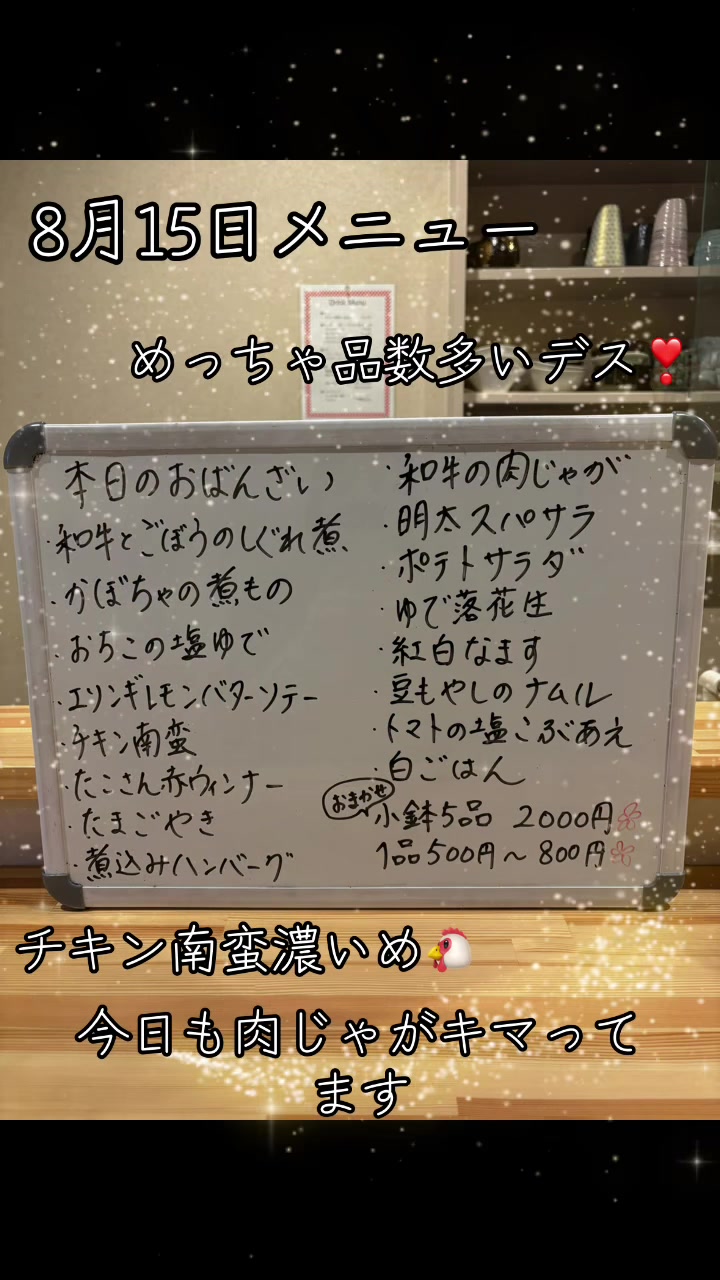 8月15日メニュー
Drink Menu
めっちゃ品数多いデス❣️
本日のおばんざい
・和牛とごぼうのしぐれ煮
・かぼちゃの煮もの
・おちこの塩ゆで
・エリンギレモンバターソテー
・チキン南蛮
・たこさん赤ウィンナー
・たまごやき
・煮込みハンバーグ
・和牛の肉じゃが
・明太スパサラ
・ポテトサラダ
・ゆで落花生
・紅白なます
・豆もやしのナムル
・トマトの塩こぶあえ
・白ごはん
おまかせ
小鉢5品 2000円
1品500円〜800円
チキン南蛮濃いめ🐔
今日も肉じゃがキマって
ます